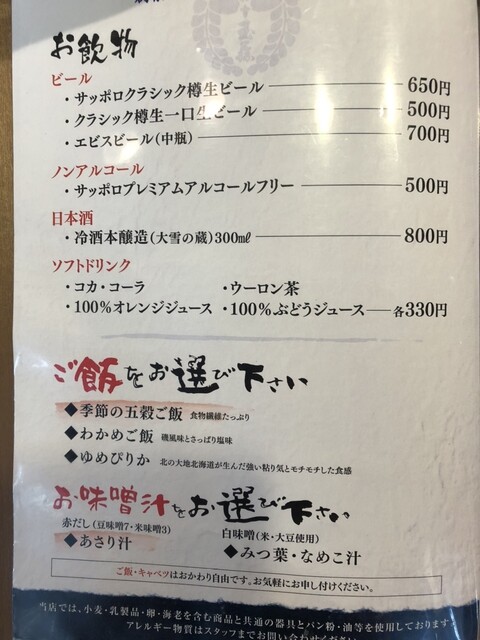 お飲物
ビール
・サッポロクラシック樽生ビール 650円
・クラシック樽生一口生ビール 500円
・エビスビール(中瓶) 700円
ノンアルコール
・サッポロプレミアムアルコールフリー 500円
日本酒
・冷酒本醸造(大雪の蔵)300㎖ 800円
ソフトドリンク
・コカ・コーラ ・ウーロン茶
・100%オレンジジュース ・100%ぶどうジュース 各330円
ご飯をお選び下さい
◆季節の五穀ご飯 食物繊維たっぷり
◆わかめご飯 磯風味とさっぱり塩味
◆ゆめぴりか 北の大地北海道が生んだ強い粘り気とモチモチした食感
お味噌汁をお選び下さい
赤だし(豆味噌7・米味噌3) 白味噌(米・大豆使用)
◆あさり汁 ◆みつ葉・なめこ汁
ご飯・キャベツはおかわり自由です。お気軽にお申し付けください。
当店では、小麦・乳製品・卵・海老を含む商品と共通の器具とパン粉・油等を使用しております。
アレルギー物質はスタッフまでお問い合わせ